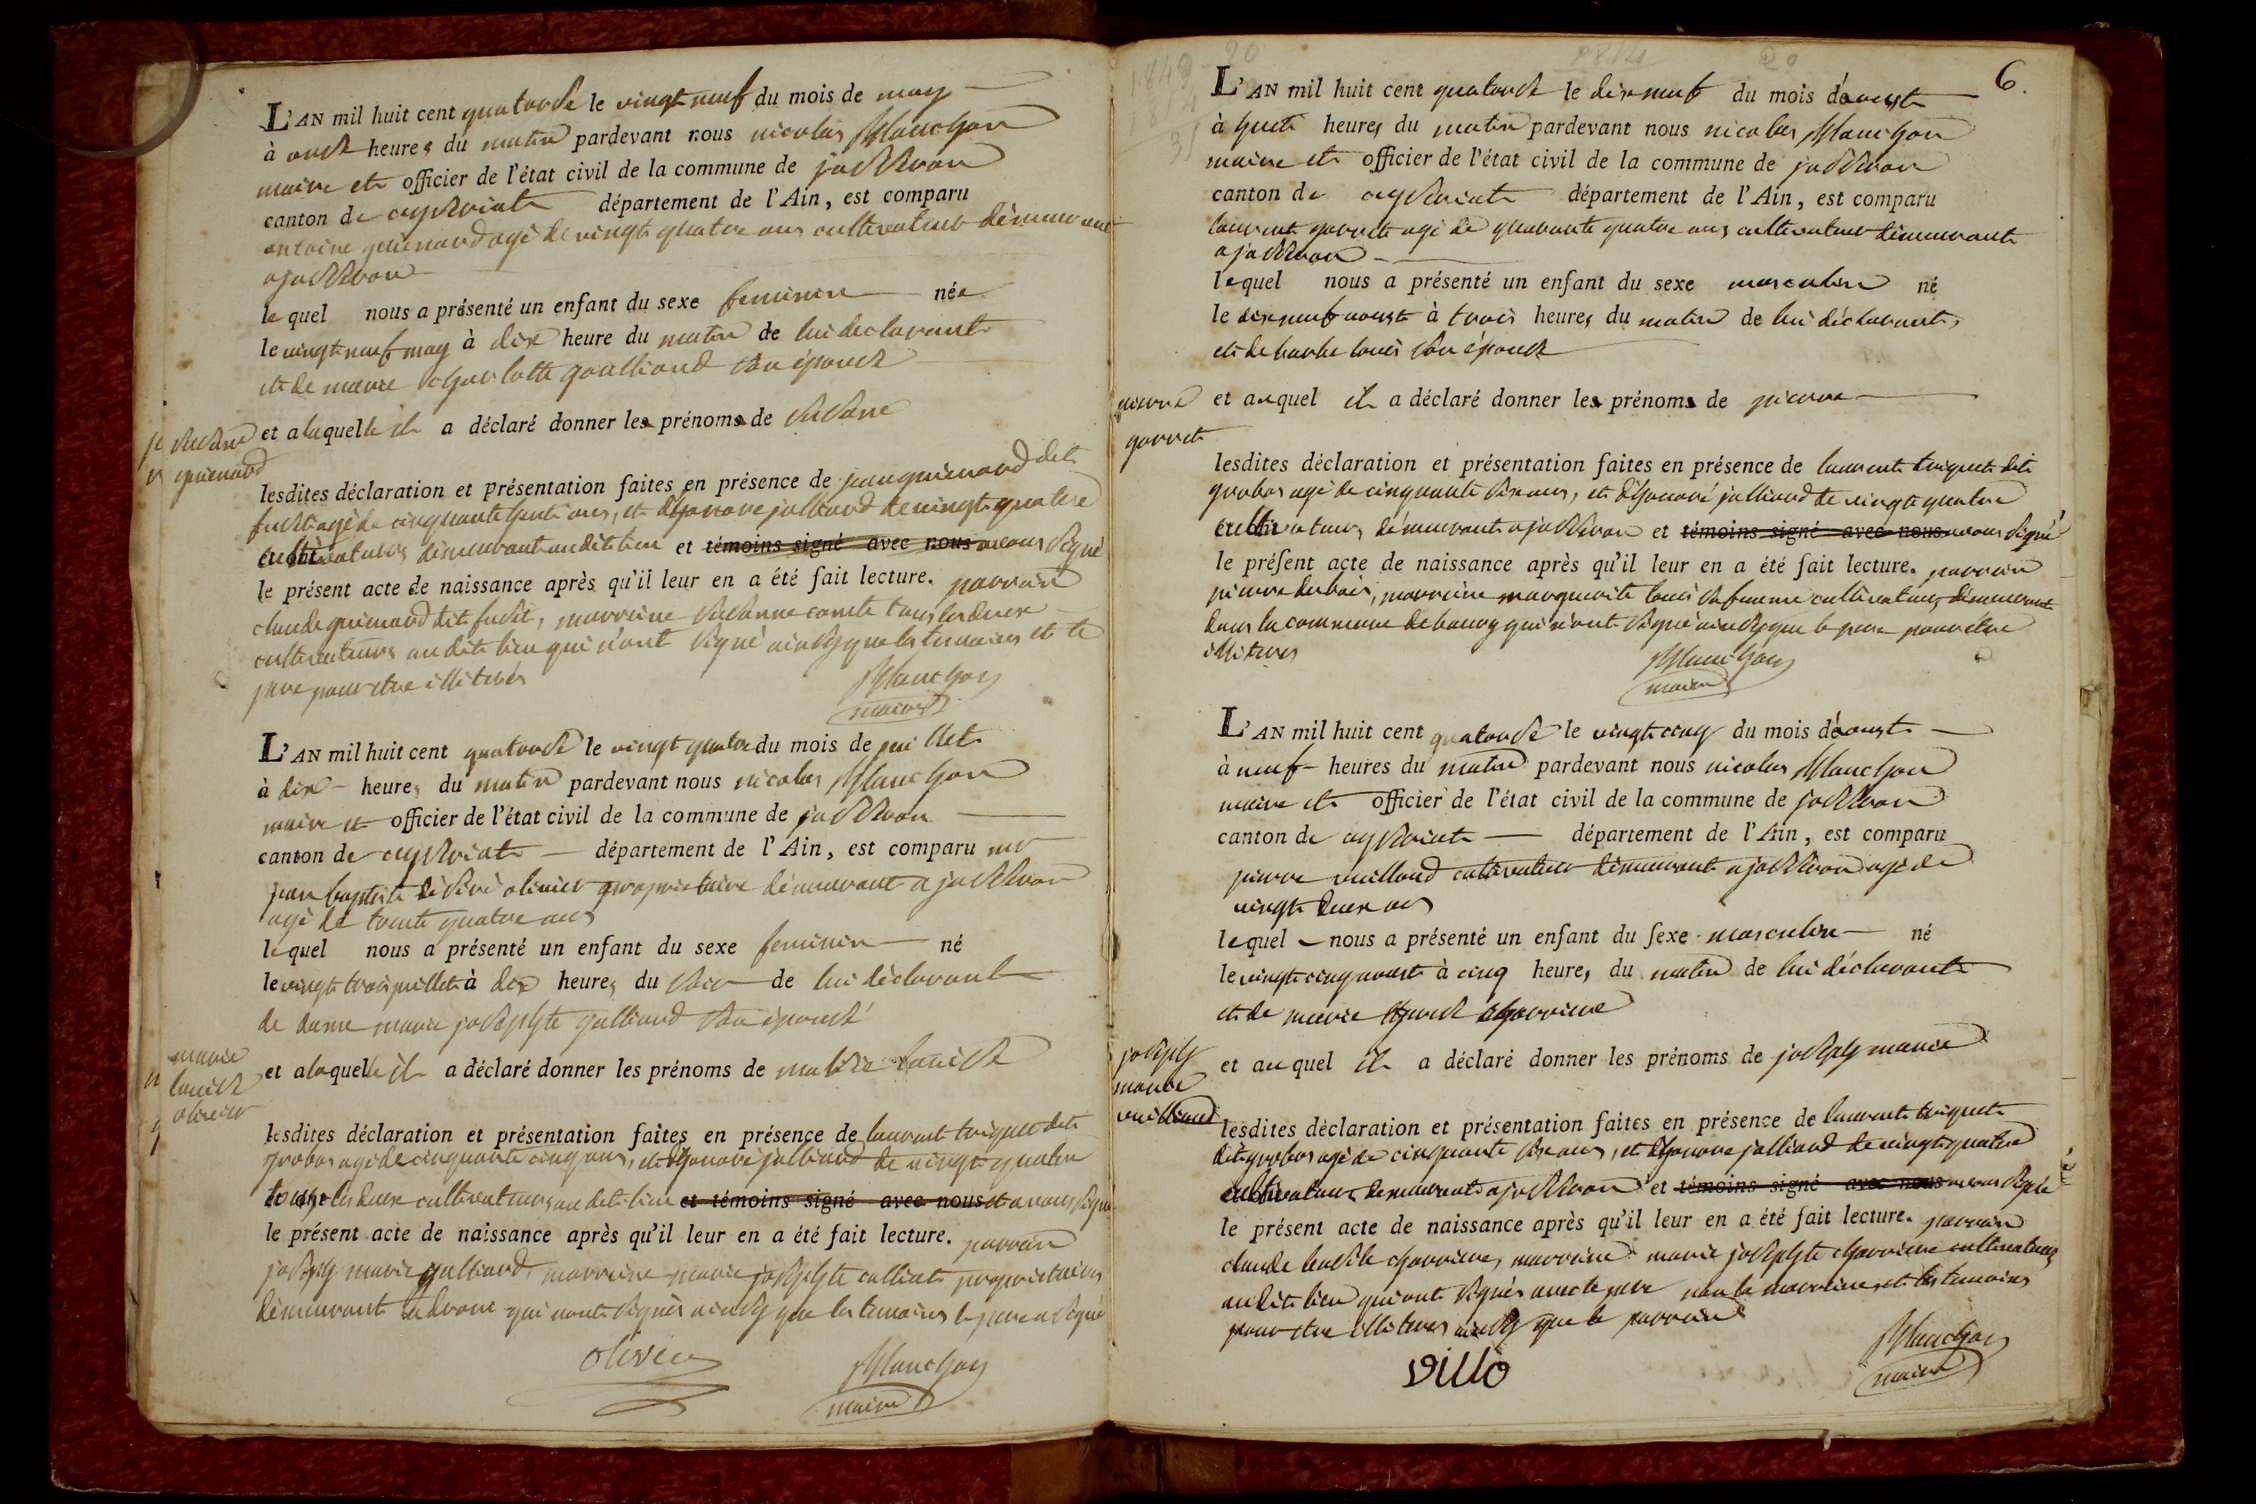 L'AN mil huit cent quatorse le vingt neuf du mois de may
à onse heures du matin pardevant nous nicolas Blanchon
maire et officier de l'état civil de la commune de jasseron
canton de ceyseriat département de l'Ain, est comparu
antoine guienard agé de vingt quatre ans cultivateur demeurant
a jasseron
le quel nous a présenté un enfant du sexe feminin née
le vingt neuf may à dix heure du matin de lui declarant
et de marie charlotte son épouse
et a laquelle il a déclaré donner les prénoms de susane
susane
guienard
lesdites déclaration et présentation faites en présence de jean guienard dit
agé de cinquante huit ans, et honoré jalliard de vingt quatre
cultivateurs demeurant audit lieu et témoins signé avec nous avons signé
le présent acte de naissance après qu'il leur en a été fait lecture. parrain
claude guienard dit, marraine susanne comte tous les deux
cultivateurs audit lieu qui n'ont signé ainsy que les temoins et le
pere pour etre illiterés
Blanchon
maire
L'AN mil huit cent quatorse le vingt quatre du mois de juillet
à dix heures du matin pardevant nous nicolas Blanchon
maire et officier de l'état civil de la commune de jasseron
canton de ceyseriat département de l'Ain, est comparu mr
jean baptiste désiré olivier proprietaire demeurant a jasseron
agé de trente quatre ans
lequel nous a présenté un enfant du sexe feminin né
le vingt trois juillet à dix heures du soir de lui déclarant
de dame marie josephte galliard son épouse
marie
louise
olivier
et a laquelle il a déclaré donner les prénoms de louise
lesdites déclaration et présentation faites en présence de laurent triquet dit
grobas agé de cinquante cinq ans, et honoré jalliard de vingt quatre
tous les deux cultivateurs au dit lieu et témoins signé avec nous et avons signé
le présent acte de naissance après qu'il leur en a été fait lecture. parrain
joseph marie galliard, marraine marie josephte proprietaires
demeurant a drom qui n'ont signés ainsy que les temoins le pere a signé
olivier
Blanchon
maire
1814
20
6.
L'AN mil huit cent quatorse le dix neuf du mois d'aoust
à huit heures du matin pardevant nous nicolas Blanchon
maire et officier de l'état civil de la commune de jasseron
canton de ceyseriat département de l'Ain, est comparu
laurent agé de quarante quatre ans cultivateur demeurant
a jasseron
lequel nous a présenté un enfant du sexe masculin né
le dix neuf aoust à trois heures du matin de lui déclarant,
et de barbe son épouse
pierre
et auquel il a déclaré donner les prénoms de pierre
lesdites déclaration et présentation faites en présence de laurent triquet dit
grobas agé de cinquante six ans, et d'honoré jalliard de vingt quatre
cultivateurs demeurant a jasseron et témoins signé avec nous avons signé
le présent acte de naissance après qu'il leur en a été fait lecture. parrain
pierre dubois, marraine marguerite sa femme cultivateurs demeurant
dans la commune de qui n'ont signé ainsy que le pere pour etre
illiterés
Blanchon
maire
L'AN mil huit cent quatorse le vingt cinq du mois d'aoust
à neuf heures du matin pardevant nous nicolas Blanchon
maire et officier de l'état civil de la commune de jasseron
canton de ceyseriat département de l'Ain, est comparu
pierre vuillaud cultivateur demeurant a jasseron agé de
vingt deux ans
lequel nous a présenté un enfant du sexe masculin né
le vingt cinq aoust à cinq heures du matin de lui déclarant
et de marie charrieve
joseph
marie
vuillaud
et auquel il a déclaré donner les prénoms de joseph marie
lesdites déclaration et présentation faites en présence de laurent triquet
dit grobas agé de cinquante six ans, et d'honoré jalliard de vingt quatre
cultivateurs demeurant a jasseron et témoins signé avec nous avons signé
le présent acte de naissance après qu'il leur en a été fait lecture. parrain
claude charrieve, marraine marie josephte charrieve cultivateurs
audit lieu qui ont signés avec le pere non la marraine et les temoins
pour etre illiterés ainsy que le parrain
villo
Blanchon
maire